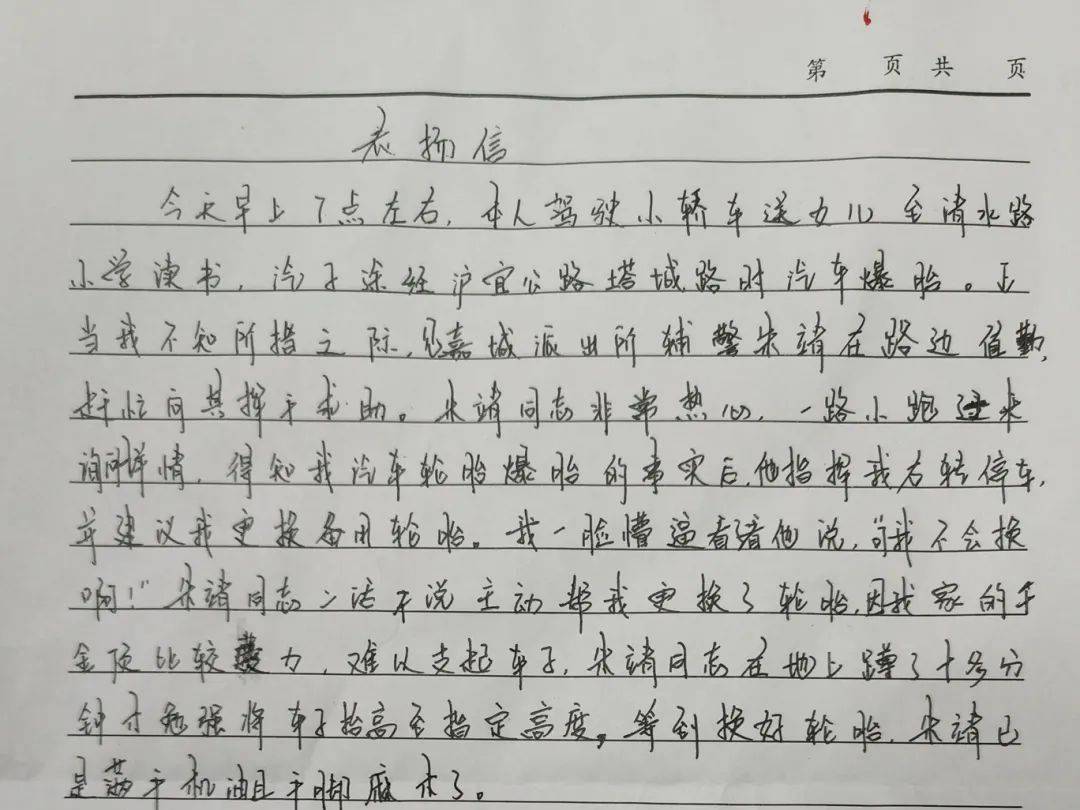 第 页 共 页
表扬信
今天早上7点左右,本人驾驶小轿车送女儿至清水路
小学读书,汽车途经沪宜公路塔城路时汽车爆胎。正
当我不知所措之际,见嘉城派出所辅警朱靖在路边值勤,
赶忙向其挥手求助。朱靖同志非常热心,一路小跑过来
询问详情,得知我汽车轮胎爆胎的事实后,他指挥我右转停车,
并建议我更换备用轮胎。我一脸懵逼看着他说,“可我不会换
啊!”朱靖同志二话不说主动帮我更换了轮胎,因我家的千
金顶比较费力,难以支起车子,朱靖同志在地上蹲了十多分
钟才勉强将车子抬高至指定高度。等到换好轮胎,朱靖已
是满手机油且手脚麻木了。